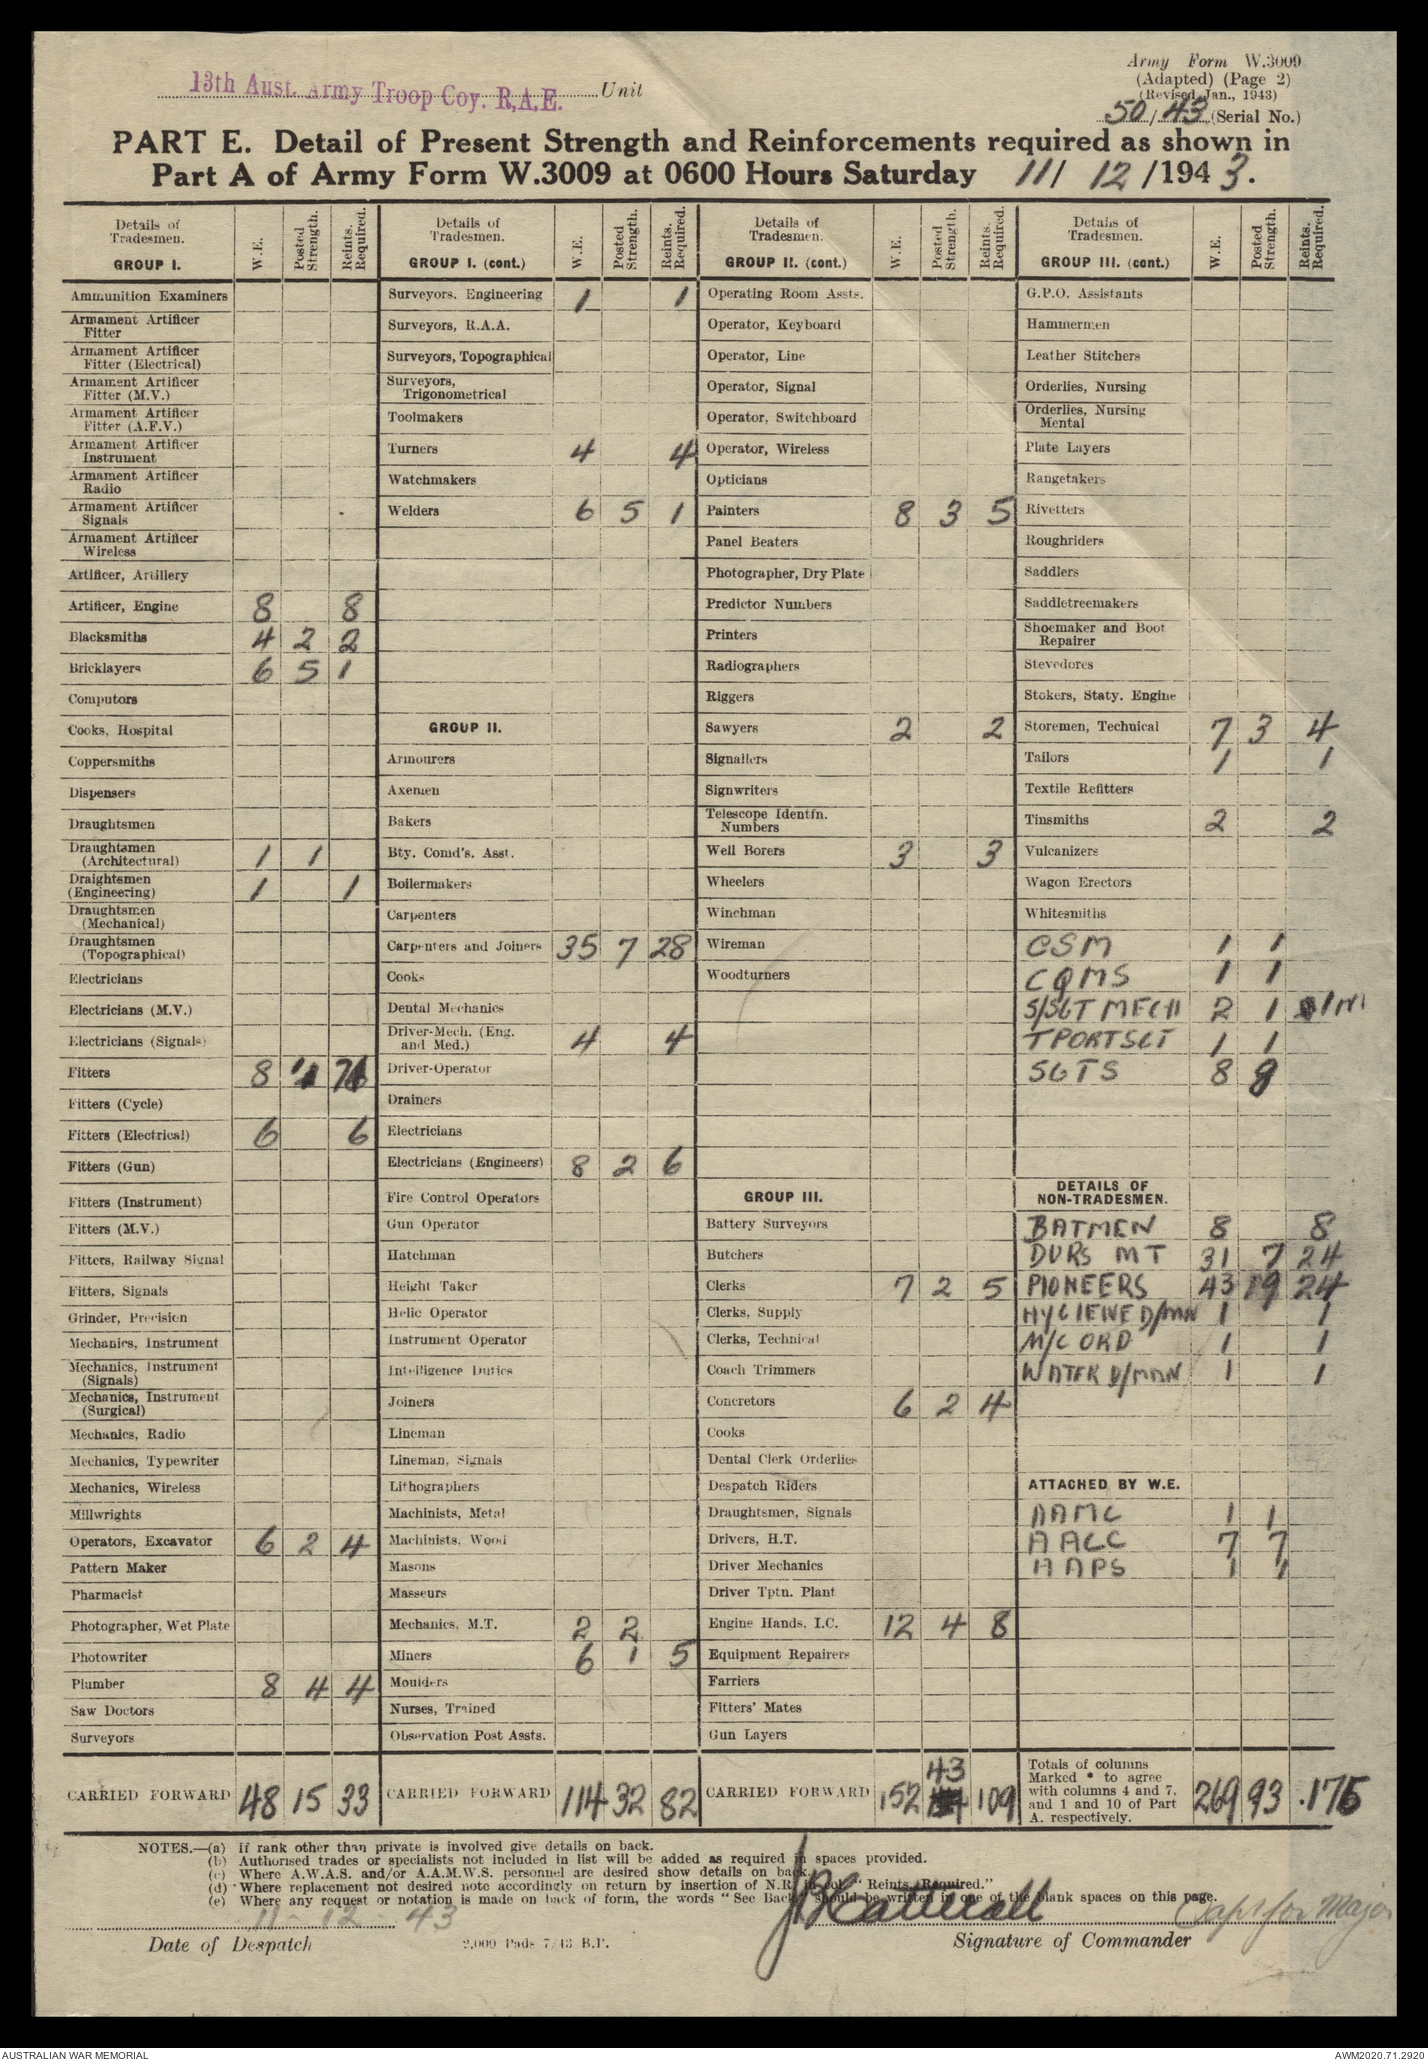 Army Form W.3009
(Adapted) (Page 2)
(Revised Jan., 1943)
13th Aust. Army Troop Coy. R.A.E. Unit
50/43 (Serial No.)
PART E. Detail of Present Strength and Reinforcements required as shown in
Part A of Army Form W.3009 at 0600 Hours Saturday 11/ 12 /1943.
Details of Tradesmen. GROUP I. W.E. Posted Strength. Reints. Required.
Ammunition Examiners
Armament Artificer Fitter
Armament Artificer Fitter (Electrical)
Armament Artificer Fitter (M.V.)
Armament Artificer Fitter (A.F.V.)
Armament Artificer Instrument
Armament Artificer Radio
Armament Artificer Signals
Armament Artificer Wireless
Artificer, Artillery
Artificer, Engine 8 8
Blacksmiths 4 2 2
Bricklayers 6 5 1
Computors
Cooks, Hospital
Coppersmiths
Dispensers
Draughtsmen
Draughtsmen (Architectural) 1 1
Draightsmen (Engineering) 1 1
Draughtsmen (Mechanical)
Draughtsmen (Topographical)
Electricians
Electricians (M.V.)
Electricians (Signals)
Fitters 8
Fitters (Cycle)
Fitters (Electrical) 6 6
Fitters (Gun)
Fitters (Instrument)
Fitters (M.V.)
Fitters, Railway Signal
Fitters, Signals
Grinder, Precision
Mechanics, Instrument
Mechanics, Instrument (Signals)
Mechanics, Instrument (Surgical)
Mechanics, Radio
Mechanics, Typewriter
Mechanics, Wireless
Millwrights
Operators, Excavator 6 2 4
Pattern Maker
Pharmacist
Photographer, Wet Plate
Photowriter
Plumber 8 4 4
Saw Doctors
Surveyors
CARRIED FORWARD 48 15 33
Details of Tradesmen. GROUP I. (cont.) W.E. Posted Strength. Reints. Required.
Surveyors. Engineering 1 1
Surveyors, R.A.A.
Surveyors, Topographical
Surveyors, Trigonometrical
Toolmakers
Turners 4 4
Watchmakers
Welders 6 5 1
GROUP II.
Armourers
Axemen
Bakers
Bty. Comd's. Asst.
Boilermakers
Carpenters
Carpenters and Joiners 35 7 28
Cooks
Dental Mechanics
Driver-Mech. (Eng. and Med.) 4 4
Driver-Operator
Drainers
Electricians
Electricians (Engineers) 8 2 6
Fire Control Operators
Gun Operator
Hatchman
Height Taker
Helic Operator
Instrument Operator
Intelligence Duties
Joiners
Lineman
Lineman, Signals
Lithographers
Machinists, Metal
Machinists, Wood
Masons
Masseurs
Mechanics, M.T. 2 2
Miners 6 1 5
Moulders
Nurses, Trained
Observation Post Assts.
CARRIED FORWARD 114 32 82
Details of Tradesmen. GROUP II. (cont.) W.E. Posted Strength. Reints. Required.
Operating Room Assts.
Operator, Keyboard
Operator, Line
Operator, Signal
Operator, Switchboard
Operator, Wireless
Opticians
Painters 8 3 5
Panel Beaters
Photographer, Dry Plate
Predictor Numbers
Printers
Radiographers
Riggers
Sawyers 2 2
Signallers
Signwriters
Telescope Identfn. Numbers
Well Borers 3 3
Wheelers
Winchman
Wireman
Woodturners
GROUP III.
Battery Surveyors
Butchers
Clerks 7 2 5
Clerks, Supply
Clerks, Technical
Coach Trimmers
Concretors 6 2 4
Cooks
Dental Clerk Orderlies
Despatch Riders
Draughtsmen, Signals
Drivers, H.T.
Driver Mechanics
Driver Tptn. Plant
Engine Hands, I.C. 12 4 8
Equipment Repairers
Farriers
Fitters' Mates
Gun Layers
CARRIED FORWARD 152 43 109
Details of Tradesmen. GROUP III. (cont.) W.E. Posted Strength. Reints. Required.
G.P.O. Assistants
Hammermen
Leather Stitchers
Orderlies, Nursing
Orderlies, Nursing Mental
Plate Layers
Rangetakers
Rivetters
Roughriders
Saddlers
Saddletreemakers
Shoemaker and Boot Repairer
Stevedores
Stokers, Staty. Engine
Storemen, Technical 7 3 4
Tailors 1 1
Textile Refitters
Tinsmiths 2 2
Vulcanizers
Wagon Erectors
Whitesmiths
CSM 1 1
CQMS 1 1
S/SGT MECH 2 1
TPORT SGT 1 1
SGTS 8 8
DETAILS OF NON-TRADESMEN.
BATMEN 8 8
DVRS MT 31 7 24
PIONEERS 43 19 24
HYGIENE D/MAN 1 1
M/C ORD 1 1
WATER D/MAN 1 1
ATTACHED BY W.E.
AAMC 1 1
AACC 7 7
AAPS 1 1
Totals of columns Marked * to agree with columns 4 and 7, and 1 and 10 of Part A. respectively. 269 93 .176
NOTES.—(a) If rank other than private is involved give details on back.
(b) Authorised trades or specialists not included in list will be added as required in spaces provided.
(c) Where A.W.A.S. and/or A.A.M.W.S. personnel are desired show details on back.
(d) Where replacement not desired note accordingly on return by insertion of N.R. in col. "Reints. Required."
(e) Where any request or notation is made on back of form, the words "See Back" should be written in one of the blank spaces on this page.
11-12-43
Capt for Major
Date of Despatch
2,000 Pads 7/43 B.P.
Signature of Commander
AUSTRALIAN WAR MEMORIAL
AWM2020.71.2920